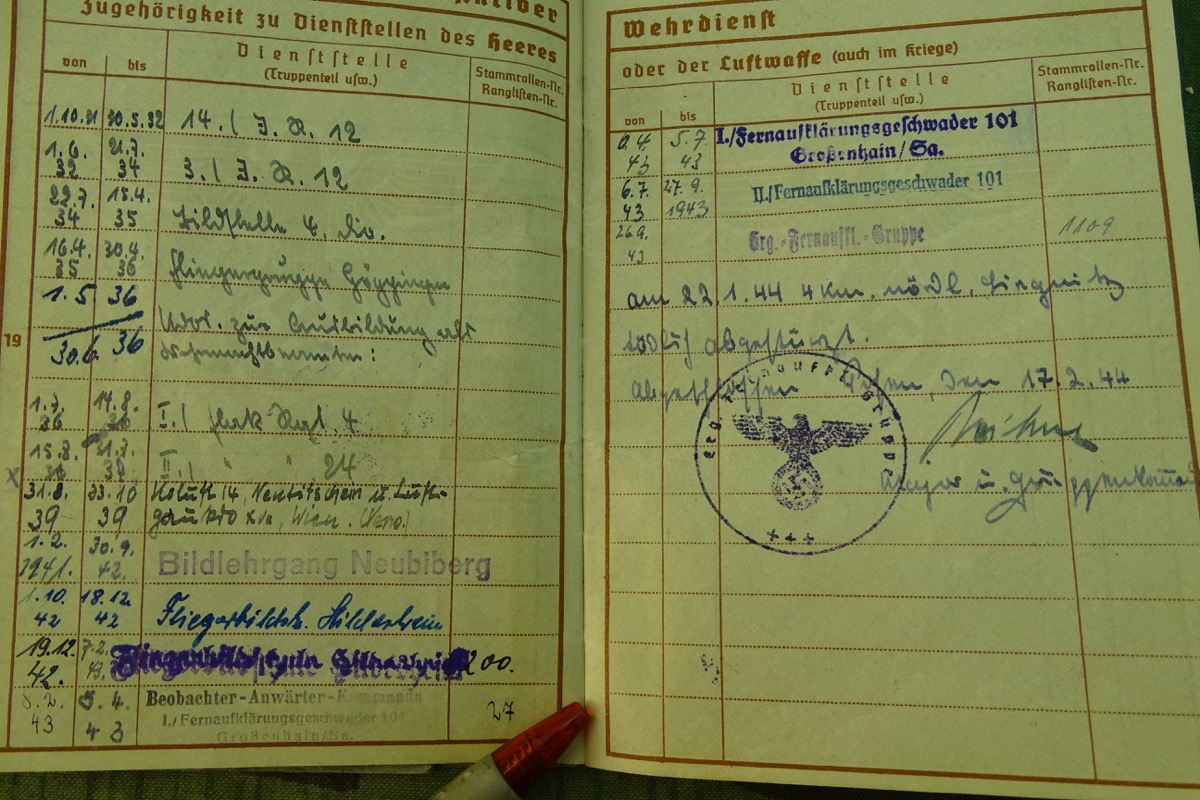 Zugehörigkeit zu Dienststellen des Heeres
von bis
Dienststelle
(Truppenteil usw.)
Stammrollen-Nr.
Ranglisten-Nr.
1.10.31 30.5.32 14./J.R. 12
1.6. 21.7.
32 34 3./J.R. 12
22.7. 15.4.
34 35 Bildstelle 4. Div.
16.4. 30.4.
35 36 Fliegergruppe Göppingen
1.5 36
Kdor. zur Ausbildung als
19
30.6. 36 Wehrmachtbeamter:
1.7. 14.8.
36 36 I./ Flak Regt. 4
15.8. 31.7.
x 36 II./ " " 24
31.8. 23.10
39 39 Neutitschein u. Luft-
gaukdo XVII, Wien.
1.2. 30.9.
1941. 42. Bildlehrgang Neubiberg
1.10. 18.12.
42 42 Hildesheim
19.12. 7.2.
42. 43. Fliegerbildschule Hildesheim 200.
8.2. 5.4. Beobachter-Anwärter-Kommando
43 43 I./Fernaufklärungsgeschwader 101
Großenhain/Sa.
27
Wehrdienst
oder der Luftwaffe (auch im Kriege)
von bis
Dienststelle
(Truppenteil usw.)
Stammrollen-Nr.
Ranglisten-Nr.
5.7 I./Fernaufklärungsgeschwader 101
43 43 Großenhain/Sa.
6.7. 27.9. II./Fernaufklärungsgeschwader 101
43 1943
26.9. Erg.-Fernaufkl.-Gruppe 1109
43
am 22.1.44 4 km. nördl. Liegnitz
tödlich abgestürzt.
Abgeschlossen den 17.2.44
Major u. Gruppenkommand
Erg. Fernaufkl. Gruppe
+++